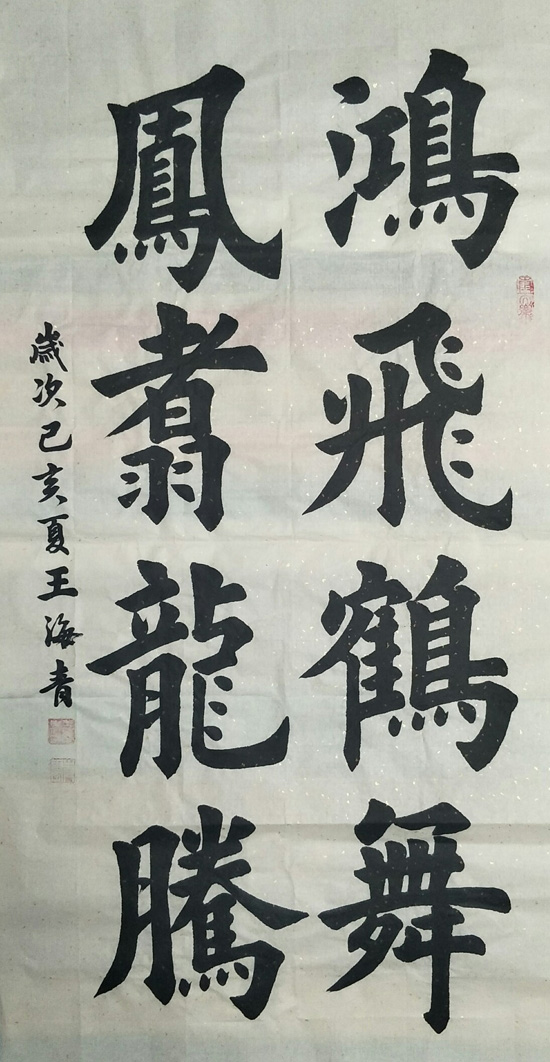 鴻飛鶴舞
鳳翥龍騰
歲次己亥夏王海青